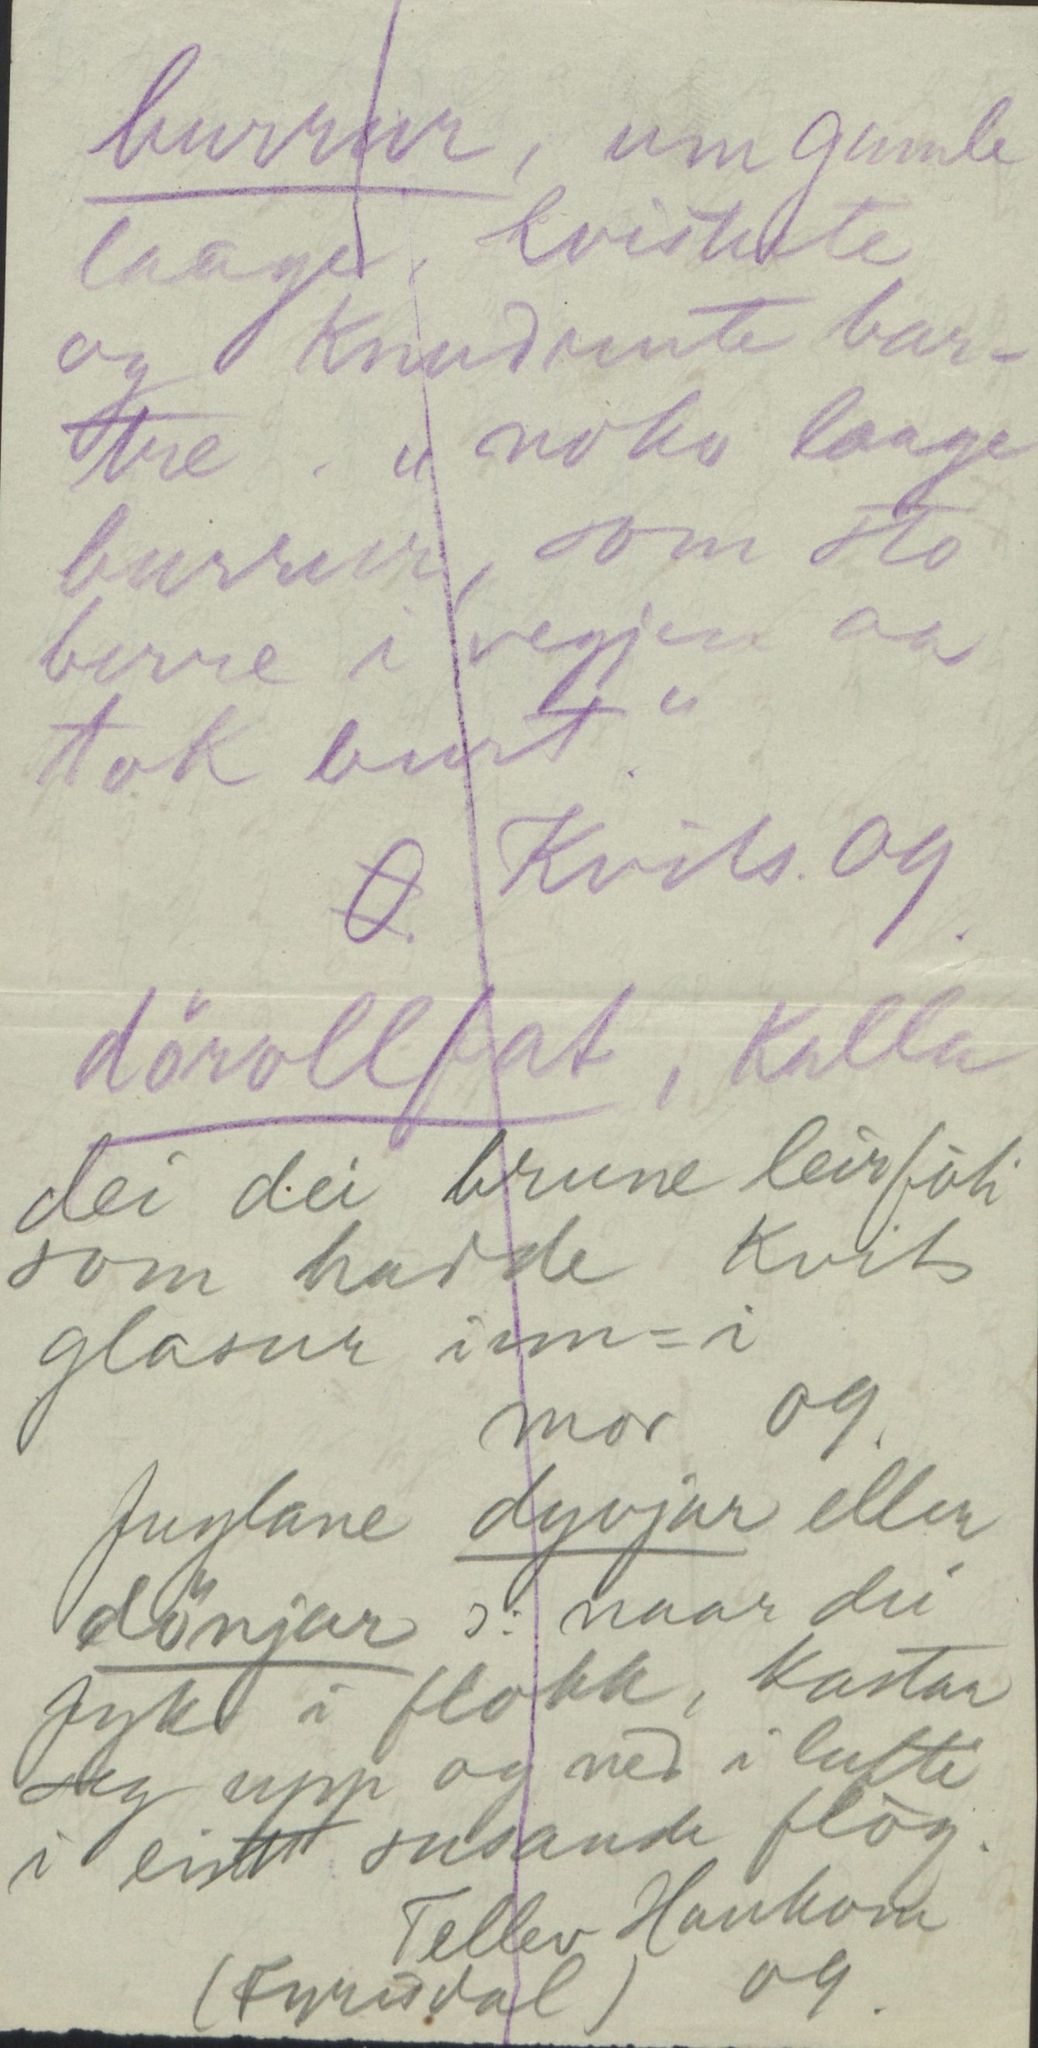 burrur, um gamle
laage, kvistute
og knudrute bar-
tre. „noko laage
burrur, som sto
berre i vegjen aa
tok burt."
Ø. Kvits. og.
dörollfat, kalla
dei dei brune leirföti
som hadde kvit
glasur inn=i
mor og.
fuglane dyvjar eller
dönjar ɔ: naar dei
fyk i flokk, kastar
seg upp og ned i lufti
i eitt susande flög.
Tellev Haukom
(Fyrisdal) og.